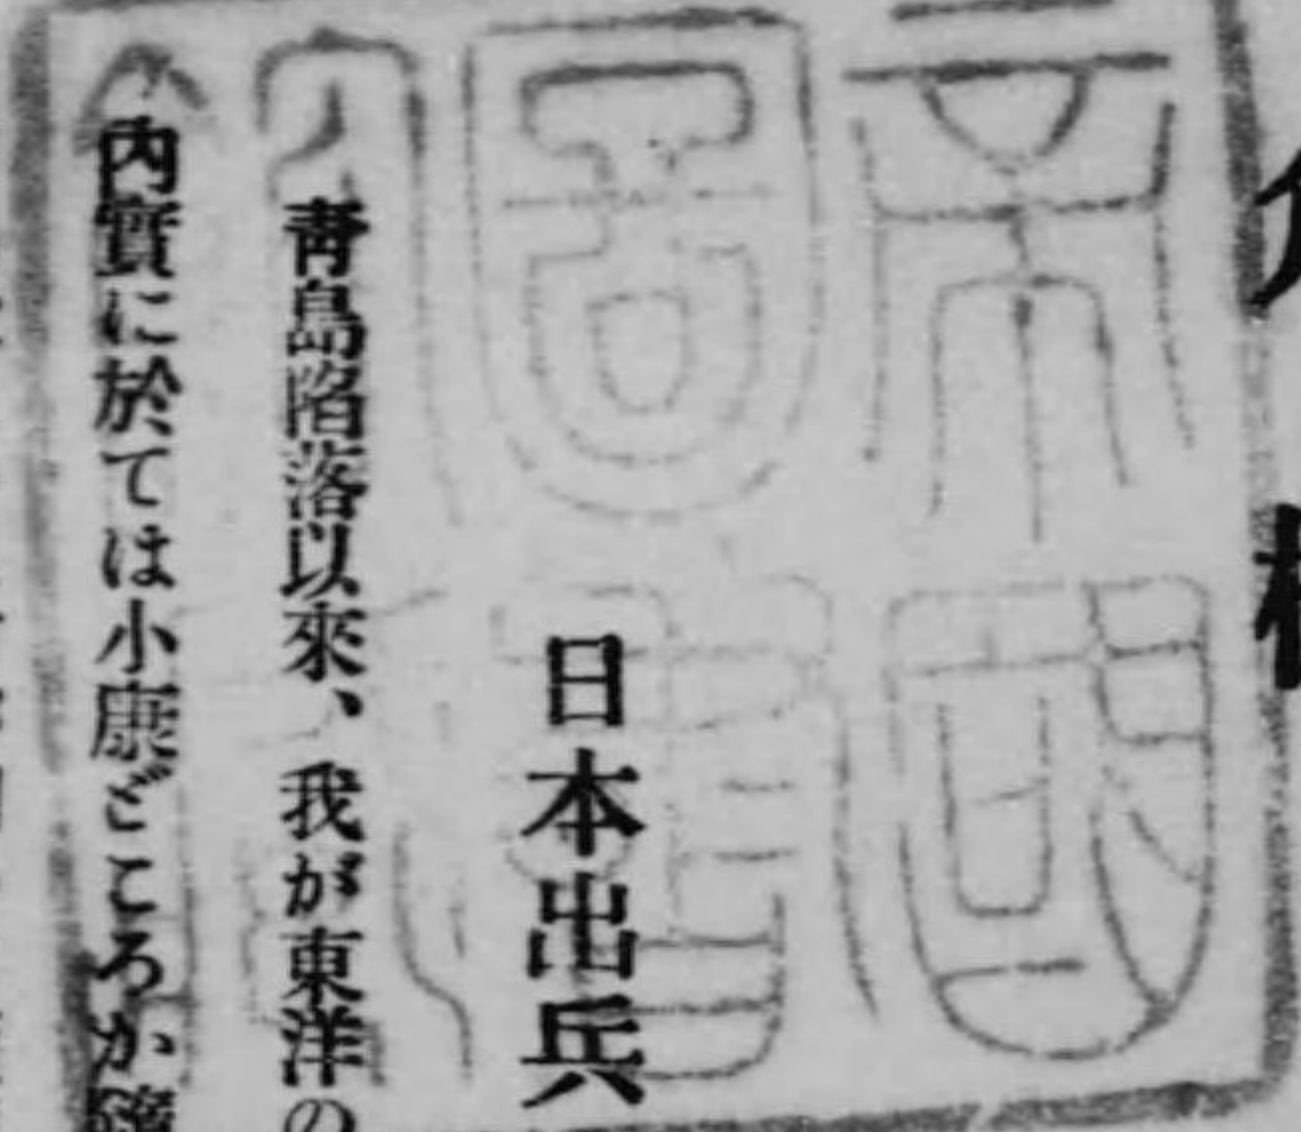 帝國
圖書
日本出兵
靑島陷落以來、我が東洋の
內實に於ては小康どころか